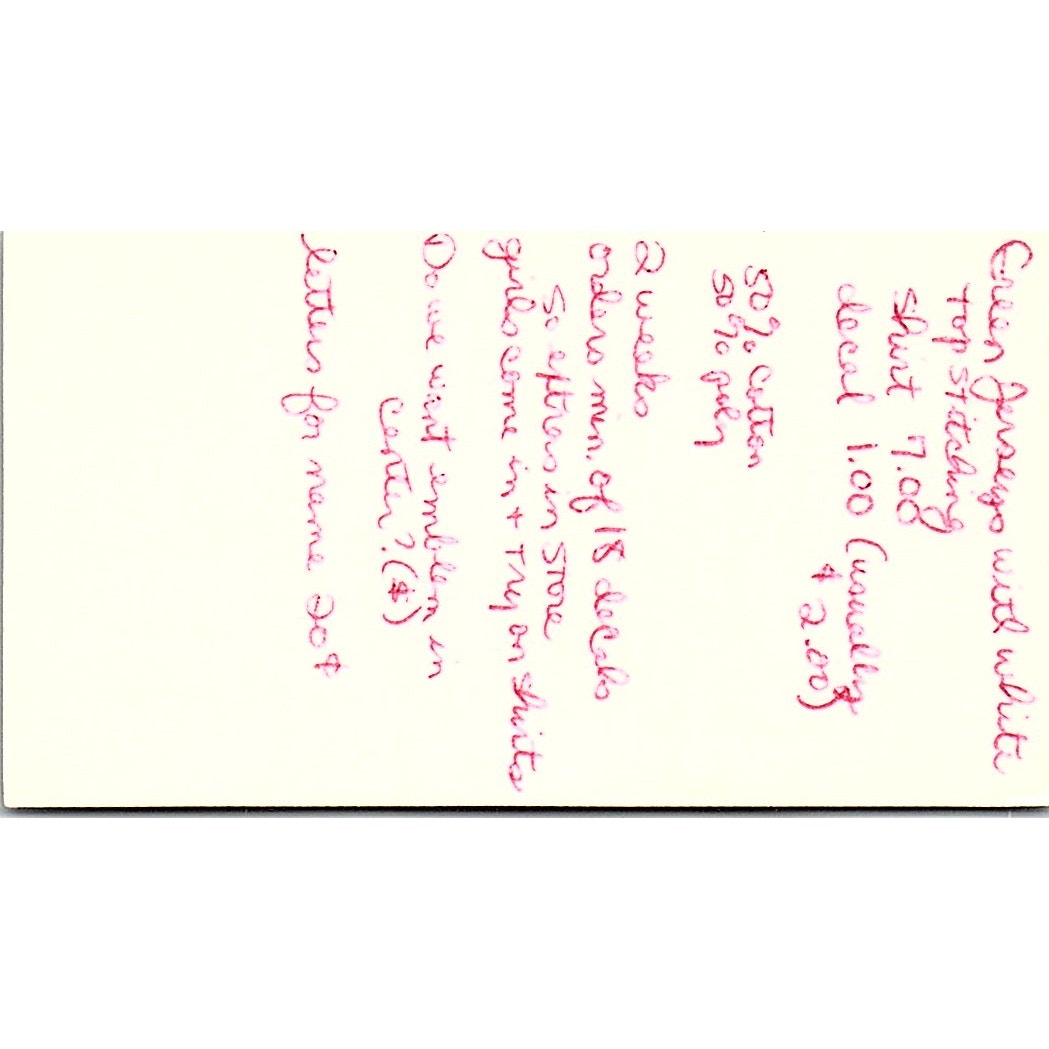 Green Jerseys with white
top stitching
shirt 7.00
decal 1.00 (usually
$ 2.00)
50% cotton
50% poly
2 weeks
orders min. of 18 decals
so extras in store
girls come in + try on shirts
Do we want emblem in
center? ($)
letters for name 20¢